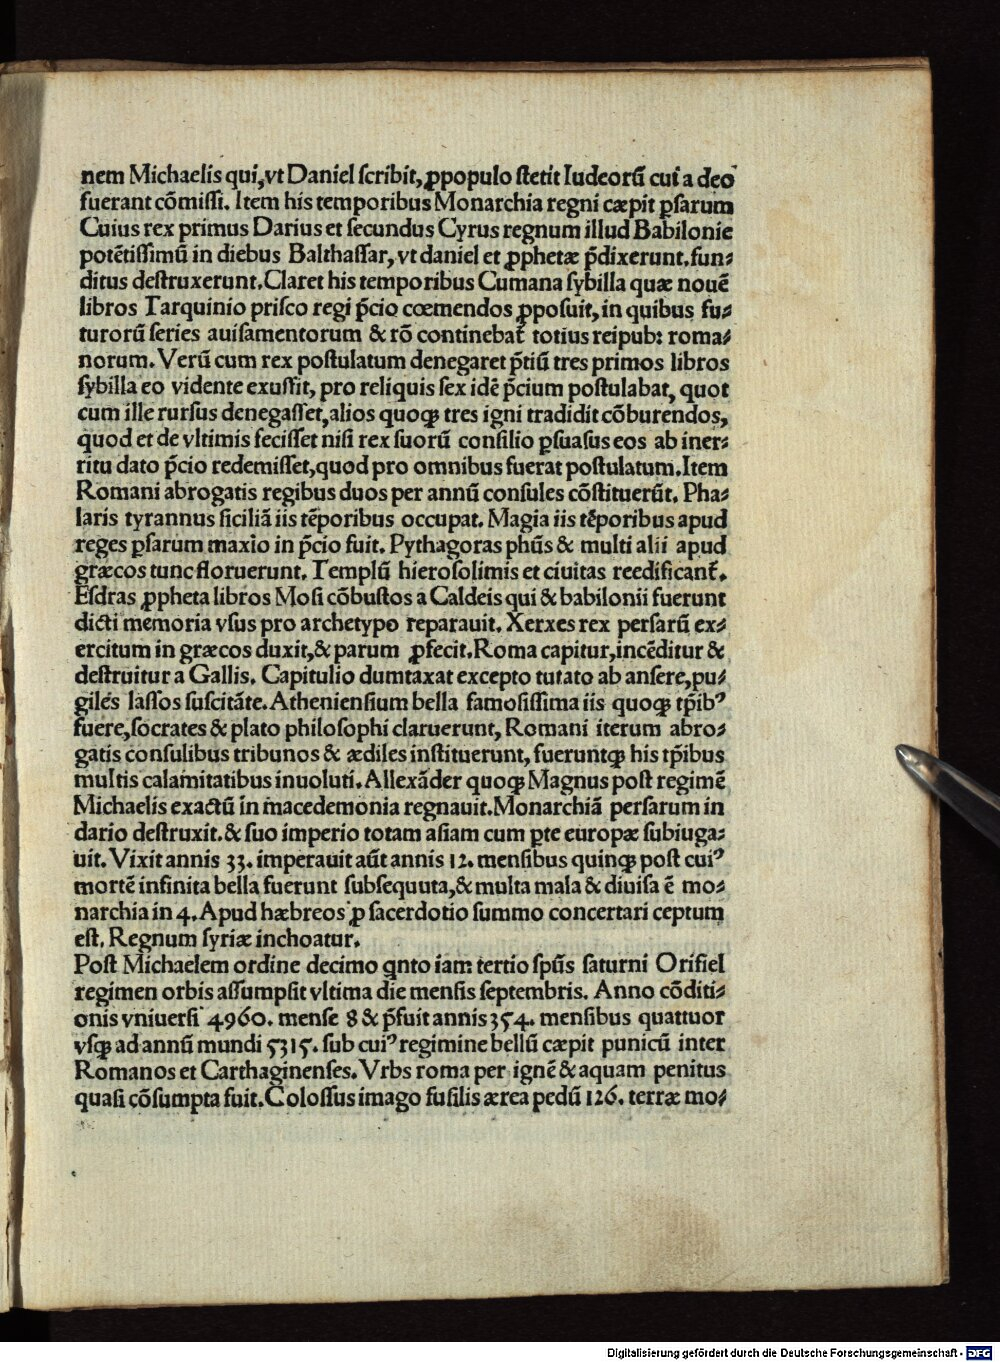 nem Michaelis qui, vt Daniel ſcribit, ꝓpopulo ſtetit Iudeorũ cui a deo
fuerant cõmiſſi. Item his temporibus Monarchia regni cæpit ꝑſarum
Cuius rex primus Darius et ſecundus Cyrus regnum illud Babilonie
potẽtiſſimũ in diebus Balthaſſar, vt daniel et ꝓphetæ p̃dixerunt. fun⸗
ditus deſtruxerunt. Claret his temporibus Cumana ſybilla quæ nouẽ
libros Tarquinio priſco regi p̃cio cœmendos ꝓpoſuit, in quibus fu⸗
turorũ ſeries auiſamentorum & rõ continebat̃ totius reipub: roma⸗
norum. Verũ cum rex poſtulatum denegaret p̃tiũ tres primos libros
ſybilla eo vidente exuſſit, pro reliquis ſex idẽ p̃cium poſtulabat, quot
cum ille rurſus denegaſſet, alios quoqꝫ tres igni tradidit cõburendos,
quod et de vltimis feciſſet niſi rex ſuorũ conſilio ꝑſuaſus eos ab iner⸗
ritu dato p̃cio redemiſſet, quod pro omnibus fuerat poſtulatum. Item
Romani abrogatis regibus duos per annũ conſules cõſtituerũt. Pha⸗
laris tyrannus ſiciliã iis tẽporibus occupat. Magia iis tẽporibus apud
reges ꝑſarum maxio in p̃cio fuit. Pythagoras phũs & multi alii apud
græcos tunc floruerunt. Templũ hieroſolimis et ciuitas reedificant̃.
Eſdras ꝓpheta libros Moſi cõbuſtos a Caldeis qui & babilonii fuerunt
dicti memoria vſus pro archetypo reparauit. Xerxes rex perſarũ ex⸗
ercitum in græcos duxit, & parum ꝓfecit. Roma capitur, incẽditur &
deſtruitur a Gallis. Capitulio dumtaxat excepto tutato ab anſere, pu⸗
giles laſſos ſuſcitãte. Athenienſium bella famoſiſſima iis quoqꝫ tp̃ibꝰ
fuere, ſocrates & plato philoſophi claruerunt, Romani iterum abro⸗
gatis conſulibus tribunos & ædiles inſtituerunt, fueruntqꝫ his tp̃ibus
multis calamitatibus inuoluti. Allexãder quoqꝫ Magnus poſt regimẽ
Michaelis exactũ in macedemonia regnauit. Monarchiã perſarum in
dario deſtruxit. & ſuo imperio totam aſiam cum ꝑte europæ ſubiuga⸗
uit. Vixit annis 33. imperauit aũt annis 12. menſibus quinqꝫ poſt cuiꝰ
mortẽ infinita bella fuerunt ſubſequuta, & multa mala & diuiſa ẽ mo⸗
narchia in 4. Apud hæbreos ꝓ ſacerdotio ſummo concertari ceptum
eſt. Regnum ſyriæ inchoatur.
Poſt Michaelem ordine decimo qnto iam tertio ſpũs ſaturni Orifiel
regimen orbis aſſumpſit vltima die menſis ſeptembris. Anno cõditi⸗
onis vniuerſi 4960. menſe 8 & p̃fuit annis 354. menſibus quattuor
vſqꝫ ad annũ mundi 5315. ſub cuiꝰ regimine bellũ cæpit punicũ inter
Romanos et Carthaginenſes. Vrbs roma per ignẽ & aquam penitus
quaſi cõſumpta fuit. Coloſſus imago fuſilis ærea pedũ 126. terræ mo⸗
Digitalisierung gefördert durch die Deutsche Forschungsgemeinschaft - DFG